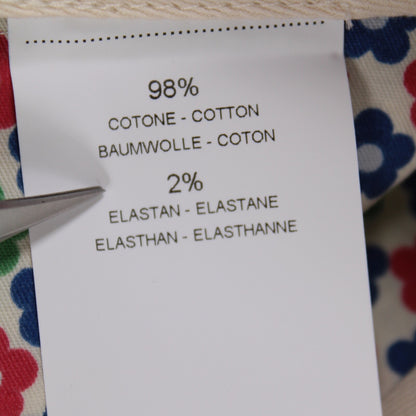 98%
COTONE - COTTON
BAUMWOLLE - COTON
2%
ELASTAN - ELASTANE
ELASTHAN - ELASTHANNE